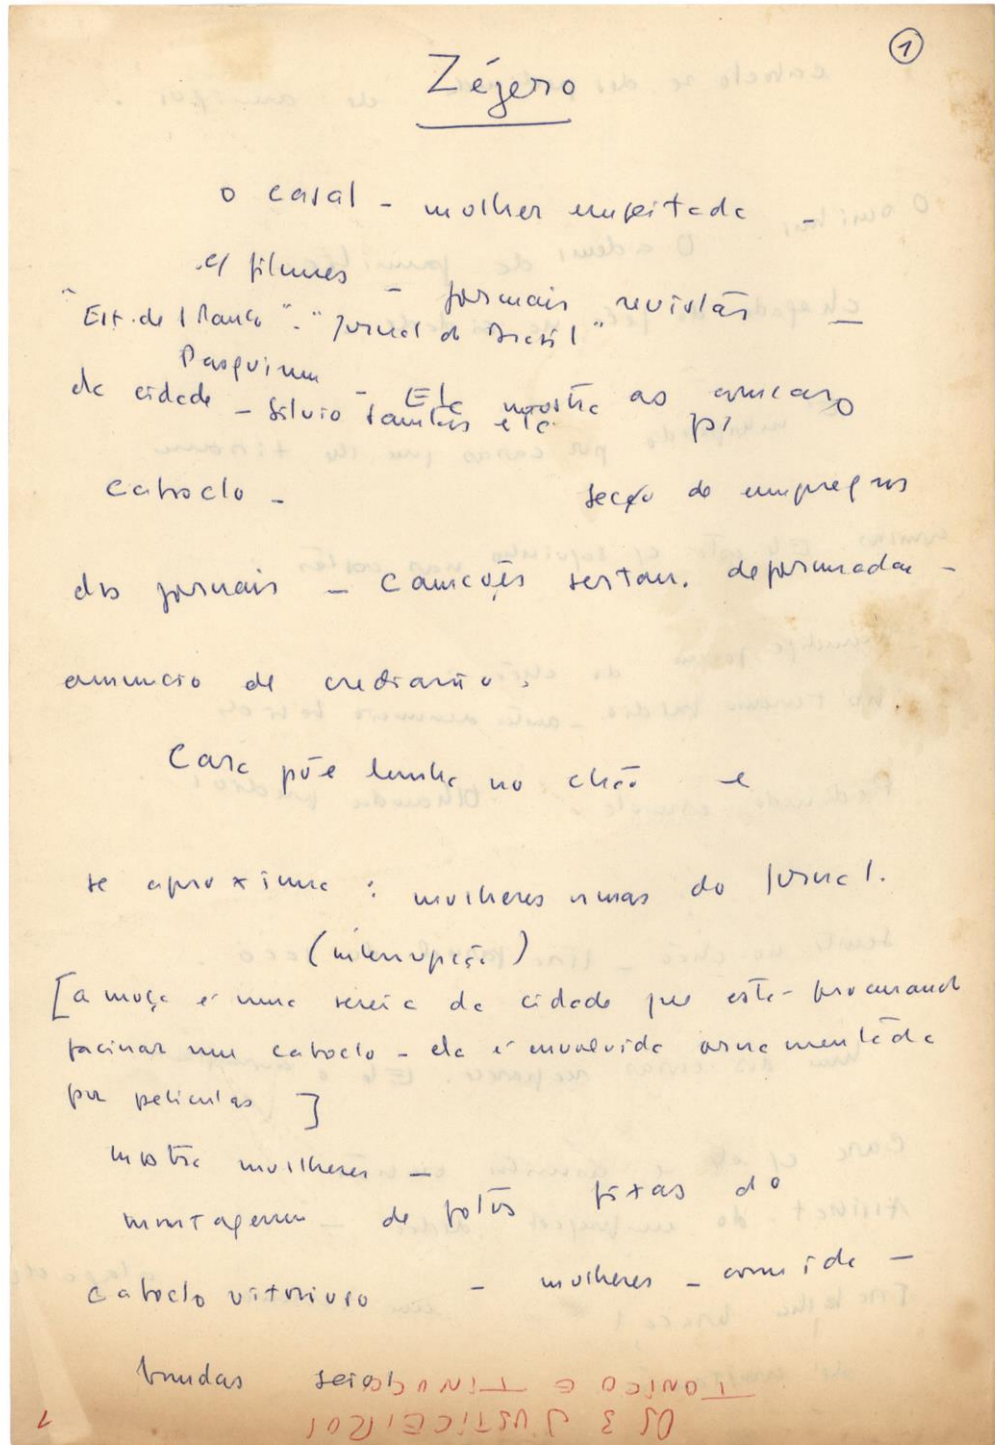 1
Zézero
o casal - mulher enfeitada -
c/ filmes - jornais revistas -
"Est. de S Paulo" - "Jornal do Brasil"
Pasquim
da cidade - Ela mostra ao
Silvio Santos etc. p/
caboclo - secção de empregos
dos jornais - canções sertan. deformadas -
anuncio de crediario.
Cara põe lenha no chão e
se aproxima : mulheres nuas do jornal.
(interrupção)
[a moça é uma sereia da cidade que está procurando
facinar um caboclo - ela é envolvida ornamentada
por peliculas]
mostra mulheres -
montagem de fotos fixas do
caboclo vitorioso - mulheres - comida -
bundas seios
TONICO E TINOCO
OS 3 JUSTICEIROS
1